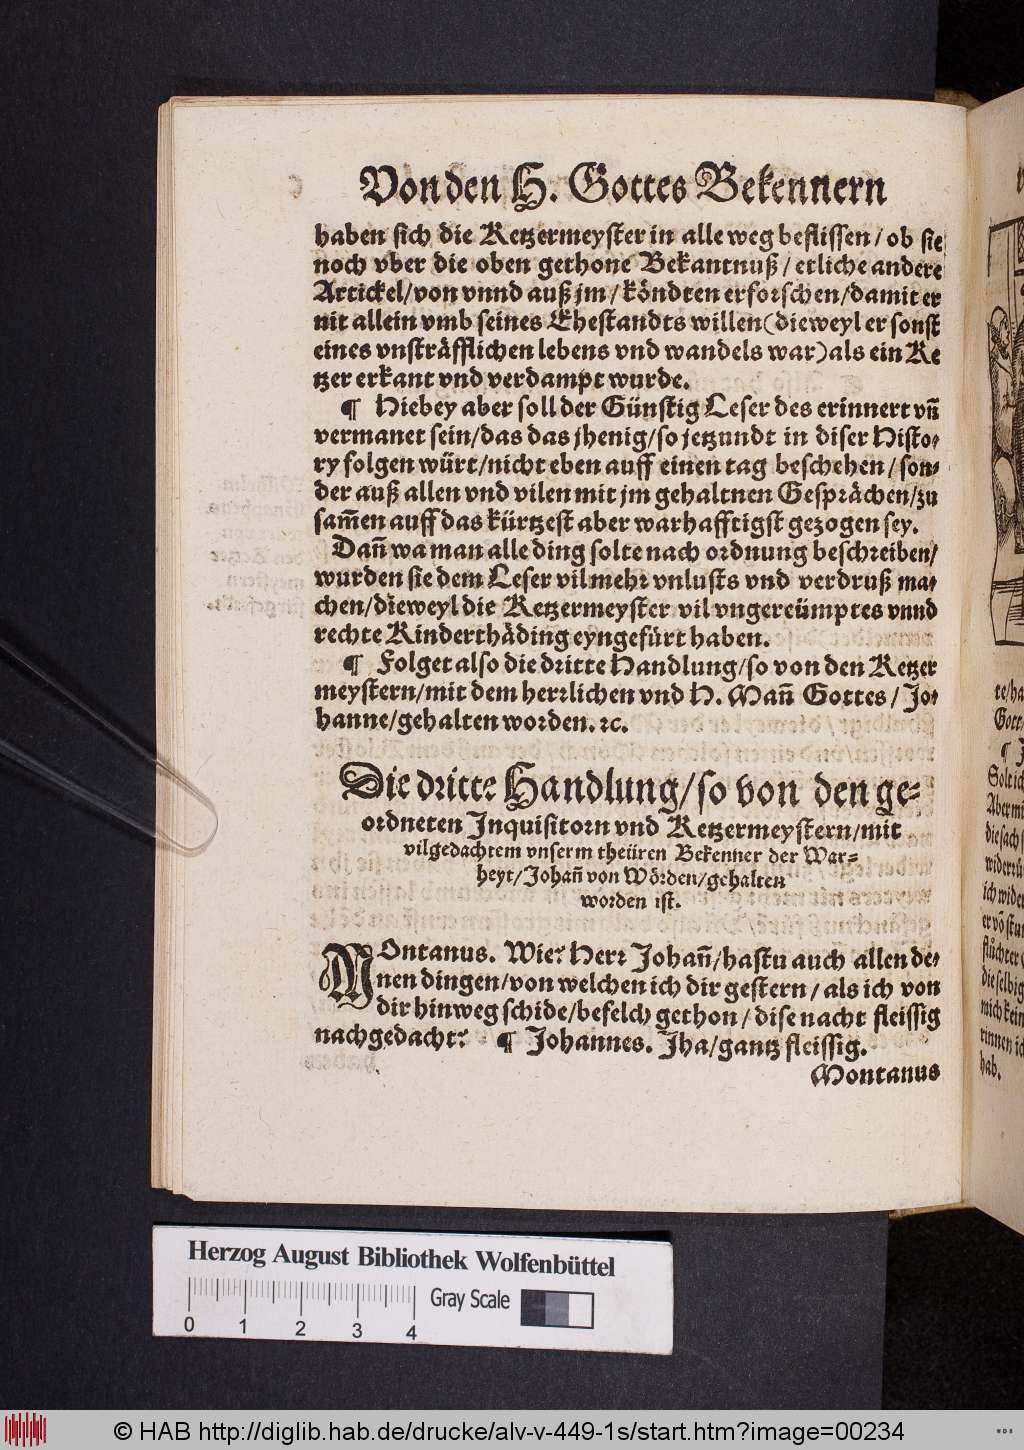 Von den H. Gottes Bekennern
haben sich die Ketzermeyster in alle weg beflissen/ob sie
noch vber die oben gethone Bekantnuß/etliche andere
Artickel/von vnnd auß jm/köndten erforschen/damit er
nit allein vmb seines Ehestandts willen(dieweyl er sonst
eines vnsträfflichen lebens vnd wandels war)als ein Ke
tzer erkant vnd verdampt wurde.
¶ Hiebey aber soll der Günstig Leser des erinnert vñ
vermanet sein/das das jhenig/so jetzundt in diser Histo⸗
ry folgen würt/nicht eben auff einen tag beschehen/son⸗
der auß allen vnd vilen mit jm gehaltnen Gesprächen/zu
sam̃en auff das kürtzest aber warhafftigst gezogen sey.
Dañ wa man alle ding solte nach ordnung beschreiben/
wurden sie dem Leser vil mehr vnlusts vnd verdruß ma⸗
chen/dieweyl die Ketzermeyster vil vngereümptes vnnd
rechte Kinderthäding eyngefürt haben.
¶ Folget also die dritte Handlung/so von den Ketzer
meystern/mit dem herrlichen vnd H. Mañ Gottes/Jo⸗
hanne/gehalten worden. ꝛc.
Die dritte Handlung/so von den ge⸗
ordneten Inquisitorn vnd Ketzermeystern/mit
vilgedachtem vnserm theüren Bekenner der War⸗
heyt/Johañ von Wörden/gehalten
worden ist.
MOntanus. Wie? Herr Johañ/hastu auch allen de⸗
nen dingen/von welchen ich dir gestern/als ich von
dir hinweg schide/befelch gethon/dise nacht fleissig
nachgedacht? ¶ Johannes. Jha/gantz fleissig.
Montanus
te/ha
Gott
¶ J
Solt ich
Aber mi
die sach s
widerrü
ich wide
er võ stu
flůchter
die selbig
mich kein
rinnen ic
hab.
Herzog August Bibliothek Wolfenbüttel
Gray Scale
0 1 2 3 4
© HAB http://diglib.hab.de/drucke/alv-v-449-1s/start.htm?image=00234